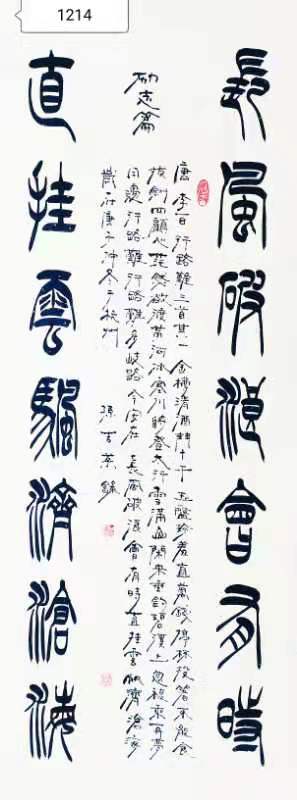 1214
長風破浪會有時
励志篇
唐李白行路難三首其一金樽清酒鬥十千玉盤珍羞直萬錢停杯投箸不能食
拔劍四顧心茫然欲渡黃河冰塞川將登太行雪滿山閑來垂釣碧溪上忽複乘舟夢
日邊行路難行路難多歧路今安在長風破浪會有時直挂雲帆濟滄海
歲在庚子仲冬于杭州 孫
直挂雲颿濟滄海